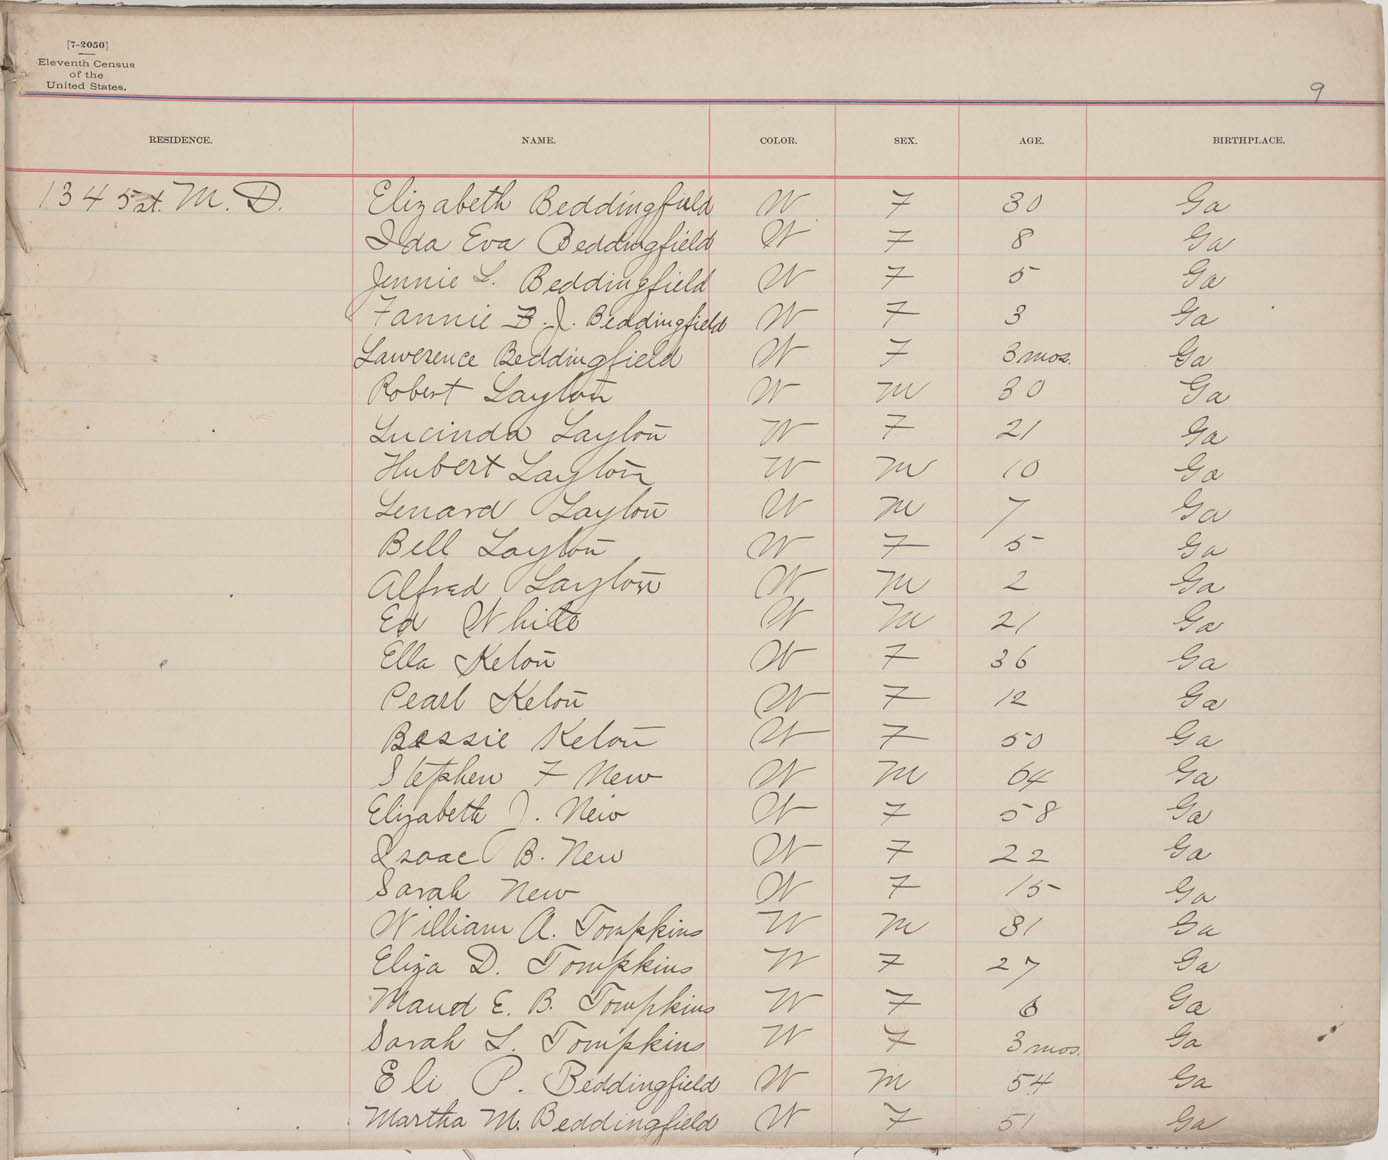 [7-2050]
Eleventh Census
of the
United States.
9
RESIDENCE. NAME. COLOR. SEX. AGE. BIRTHPLACE.
1345st. M. D. Elizabeth Beddingfield W F 30 Ga
Ida Eva Beddingfield W F 8 Ga
Jennie L. Beddingfield W F 5 Ga
Fannie B. J. Beddingfield W F 3 Ga
Lawerence Beddingfield W F 3 mos. Ga
Robert Layton W M 30 Ga
Lucinda Layton W F 21 Ga
Hubert Layton W M 10 Ga
Lenard Layton W M 7 Ga
Bell Layton W F 5 Ga
Alfred Layton W M 2 Ga
Ed White W M 21 Ga
Ella Keton W F 36 Ga
Pearl Keton W F 12 Ga
Bessie Keton W F 50 Ga
Stephen F New W M 64 Ga
Elizabeth J. New W F 58 Ga
Isaac B. New W F 22 Ga
Sarah New W F 15 Ga
William A. Tompkins W M 31 Ga
Eliza D. Tompkins W F 27 Ga
Maud E. B. Tompkins W F 6 Ga
Sarah L. Tompkins W F 3 mos. Ga
Eli P. Beddingfield W M 54 Ga
Martha M. Beddingfield W F 51 Ga